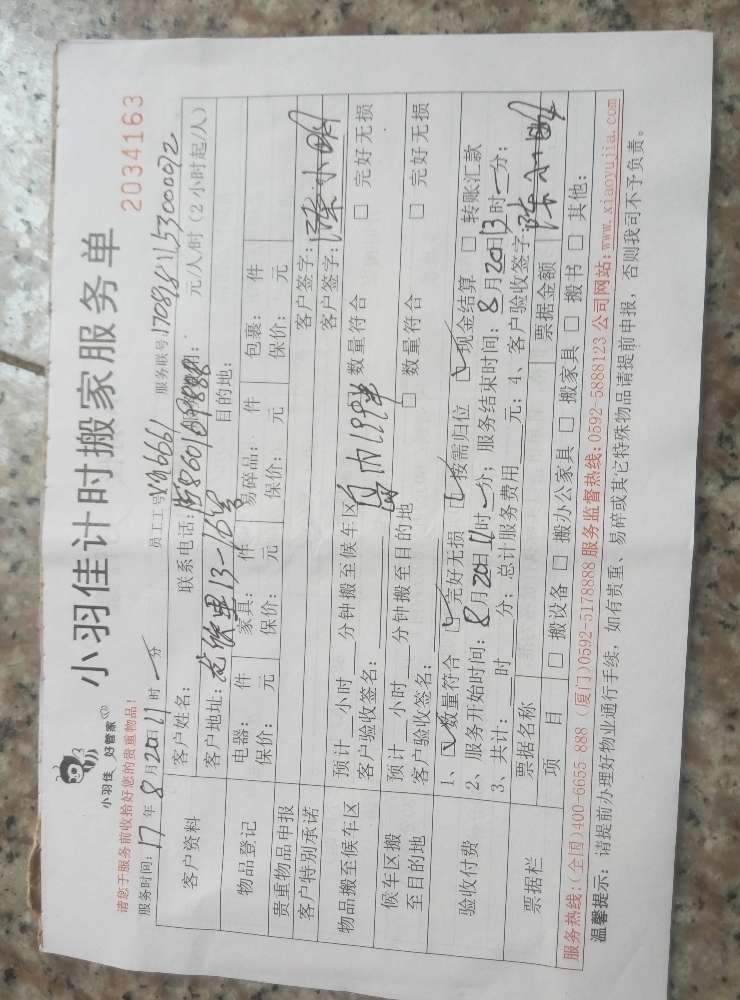 小羽佳 好管家
小羽佳计时搬家服务单
2034163
请您于服务前收拾好您的贵重物品!
服务时间: 17 年 8 月 20 日 11 时 一 分 员工工号 服务联号:
客户资料 客户姓名: 联系电话: 元/人/时(2小时起/人)
客户地址: 13-16号 目的地:
物品登记 电器: 件 家具: 件 易碎品: 件 包裹: 件
贵重物品申报 保价: 元 保价: 元 保价: 元 保价: 元
客户特别承诺 客户签字: 陈小明
物品搬至候车区 预计 小时 分钟搬至候车区 客户签字:
客户验收签名: 岛内 □ 数量符合 □ 完好无损
候车区搬至目的地 预计 小时 分钟搬至目的地
客户验收签名: □ 数量符合 □ 完好无损
验收付费 1、☑ 数量符合 ☑ 完好无损 ☑ 按需归位 ☑ 现金结算 □ 转账汇款
2、服务开始时间: 8 月 20 日 11 时 一 分; 服务结束时间: 8 月 20 日 13 时 一 分;
3、共计: 时 分; 总计服务费用 元; 4、客户验收签字 陈小明
票据栏 票据名称 票据金额
项 目 □ 搬设备 □ 搬办公家具 □ 搬家具 □ 搬书 □ 其他:
服务热线:(全国)400-6655 888 (厦门)0592-5178888 服务监督热线:0592-5888123 公司网站:www.xiaoyujia.com
温馨提示: 请提前办理好物业通行手续, 如有贵重、易碎或其它特殊物品请提前申报, 否则我司不予负责。